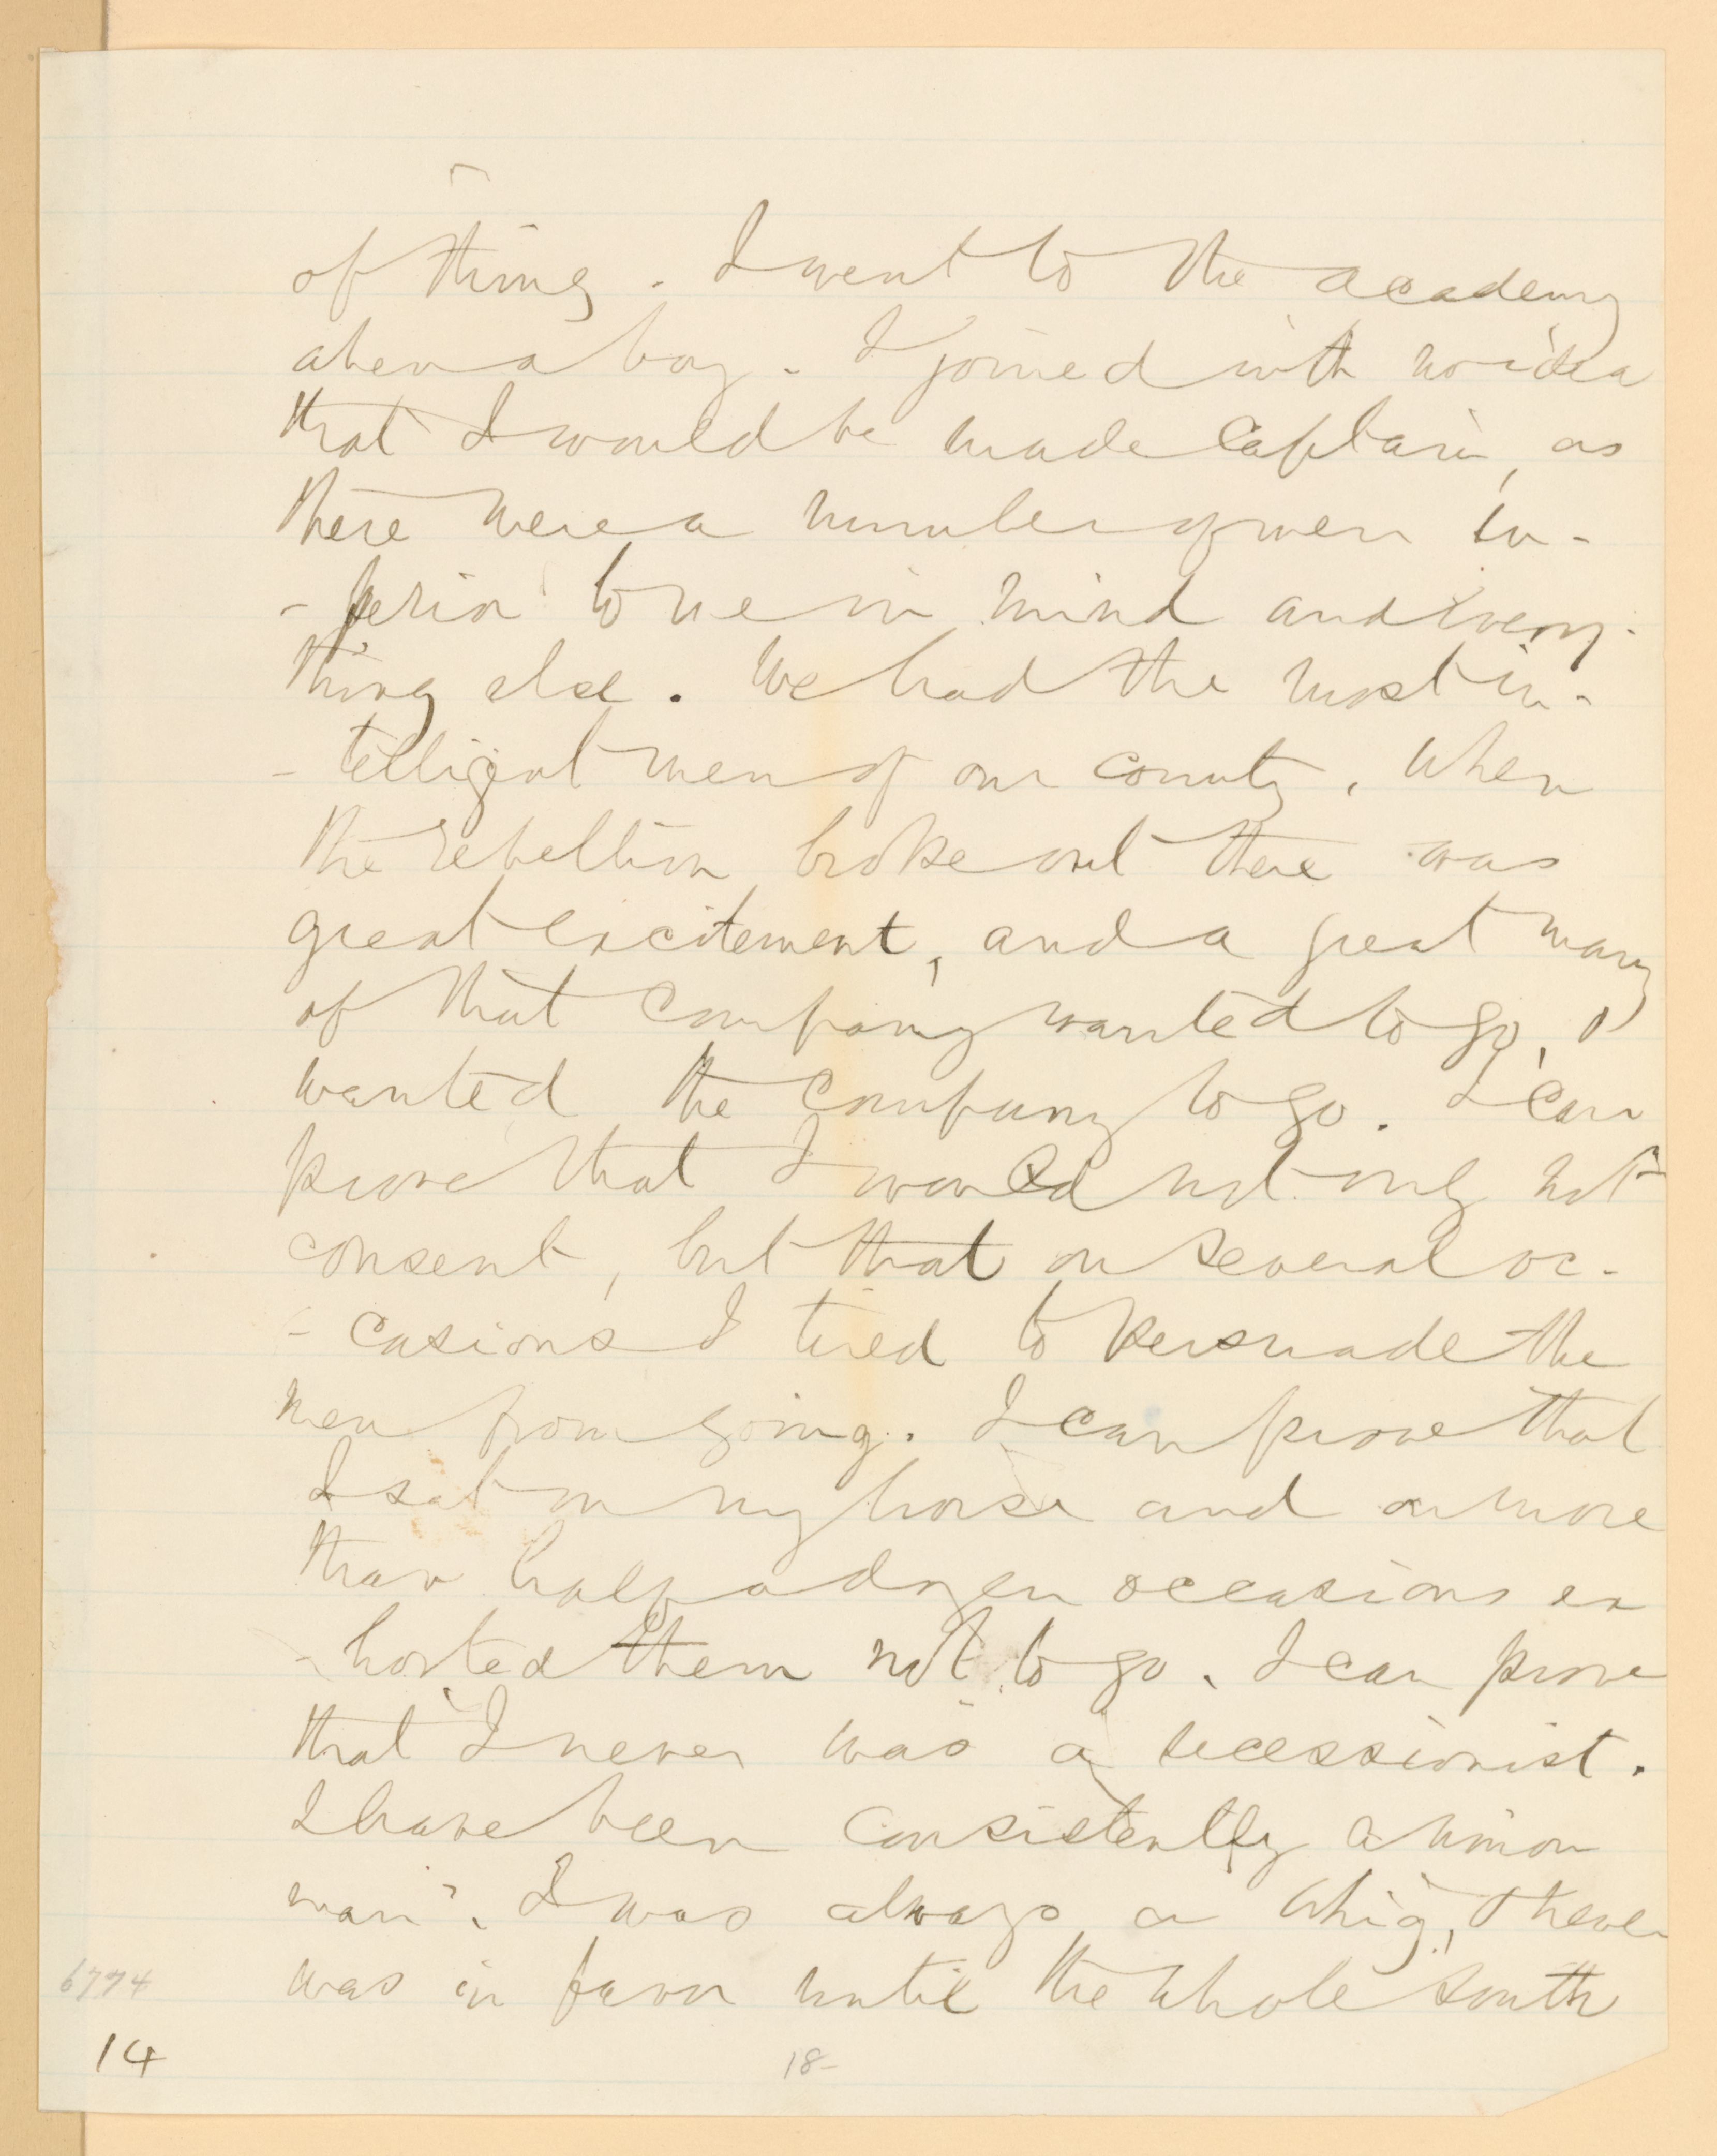 of thing. I went to the academy
when a boy. I joined with no idea
that I would be made Captain, as
there were a number of men su-
-perior to me in mind and every-
thing else. We had the most in-
-telligent men of our county. When
the rebellion broke out there was
great excitement, and a great many
of that Company wanted to go, &
wanted the Company to go. I can
prove that I would not only not
consent, but that on several oc-
-casions I tried to persuade the
men from going. I can prove that
I sat on my horse and on more
than half a dozen occasions ex
-horted them not to go. I can prove
that I never was a secessionist.
I have been consistently a Union
man. I was always a Whig, I never
was in favor until the whole South
6774
14
18-